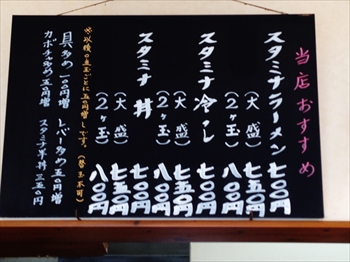 当店おすすめ
スタミナラーメン 七〇〇円
(大盛) 七五〇円
(2ヶ玉) 八〇〇円
スタミナ冷し 七〇〇円
(大盛) 七五〇円
(2ヶ玉) 八〇〇円
スタミナ丼 七〇〇円
(大盛) 七五〇円
(2ヶ玉) 八〇〇円
※以後の1玉ごとに五〇円増しです。(替玉不可)
具多め 一〇〇円増
レバー多め 五〇円増
カボチャ多め 五〇円増
スタミナ半丼 三五〇円